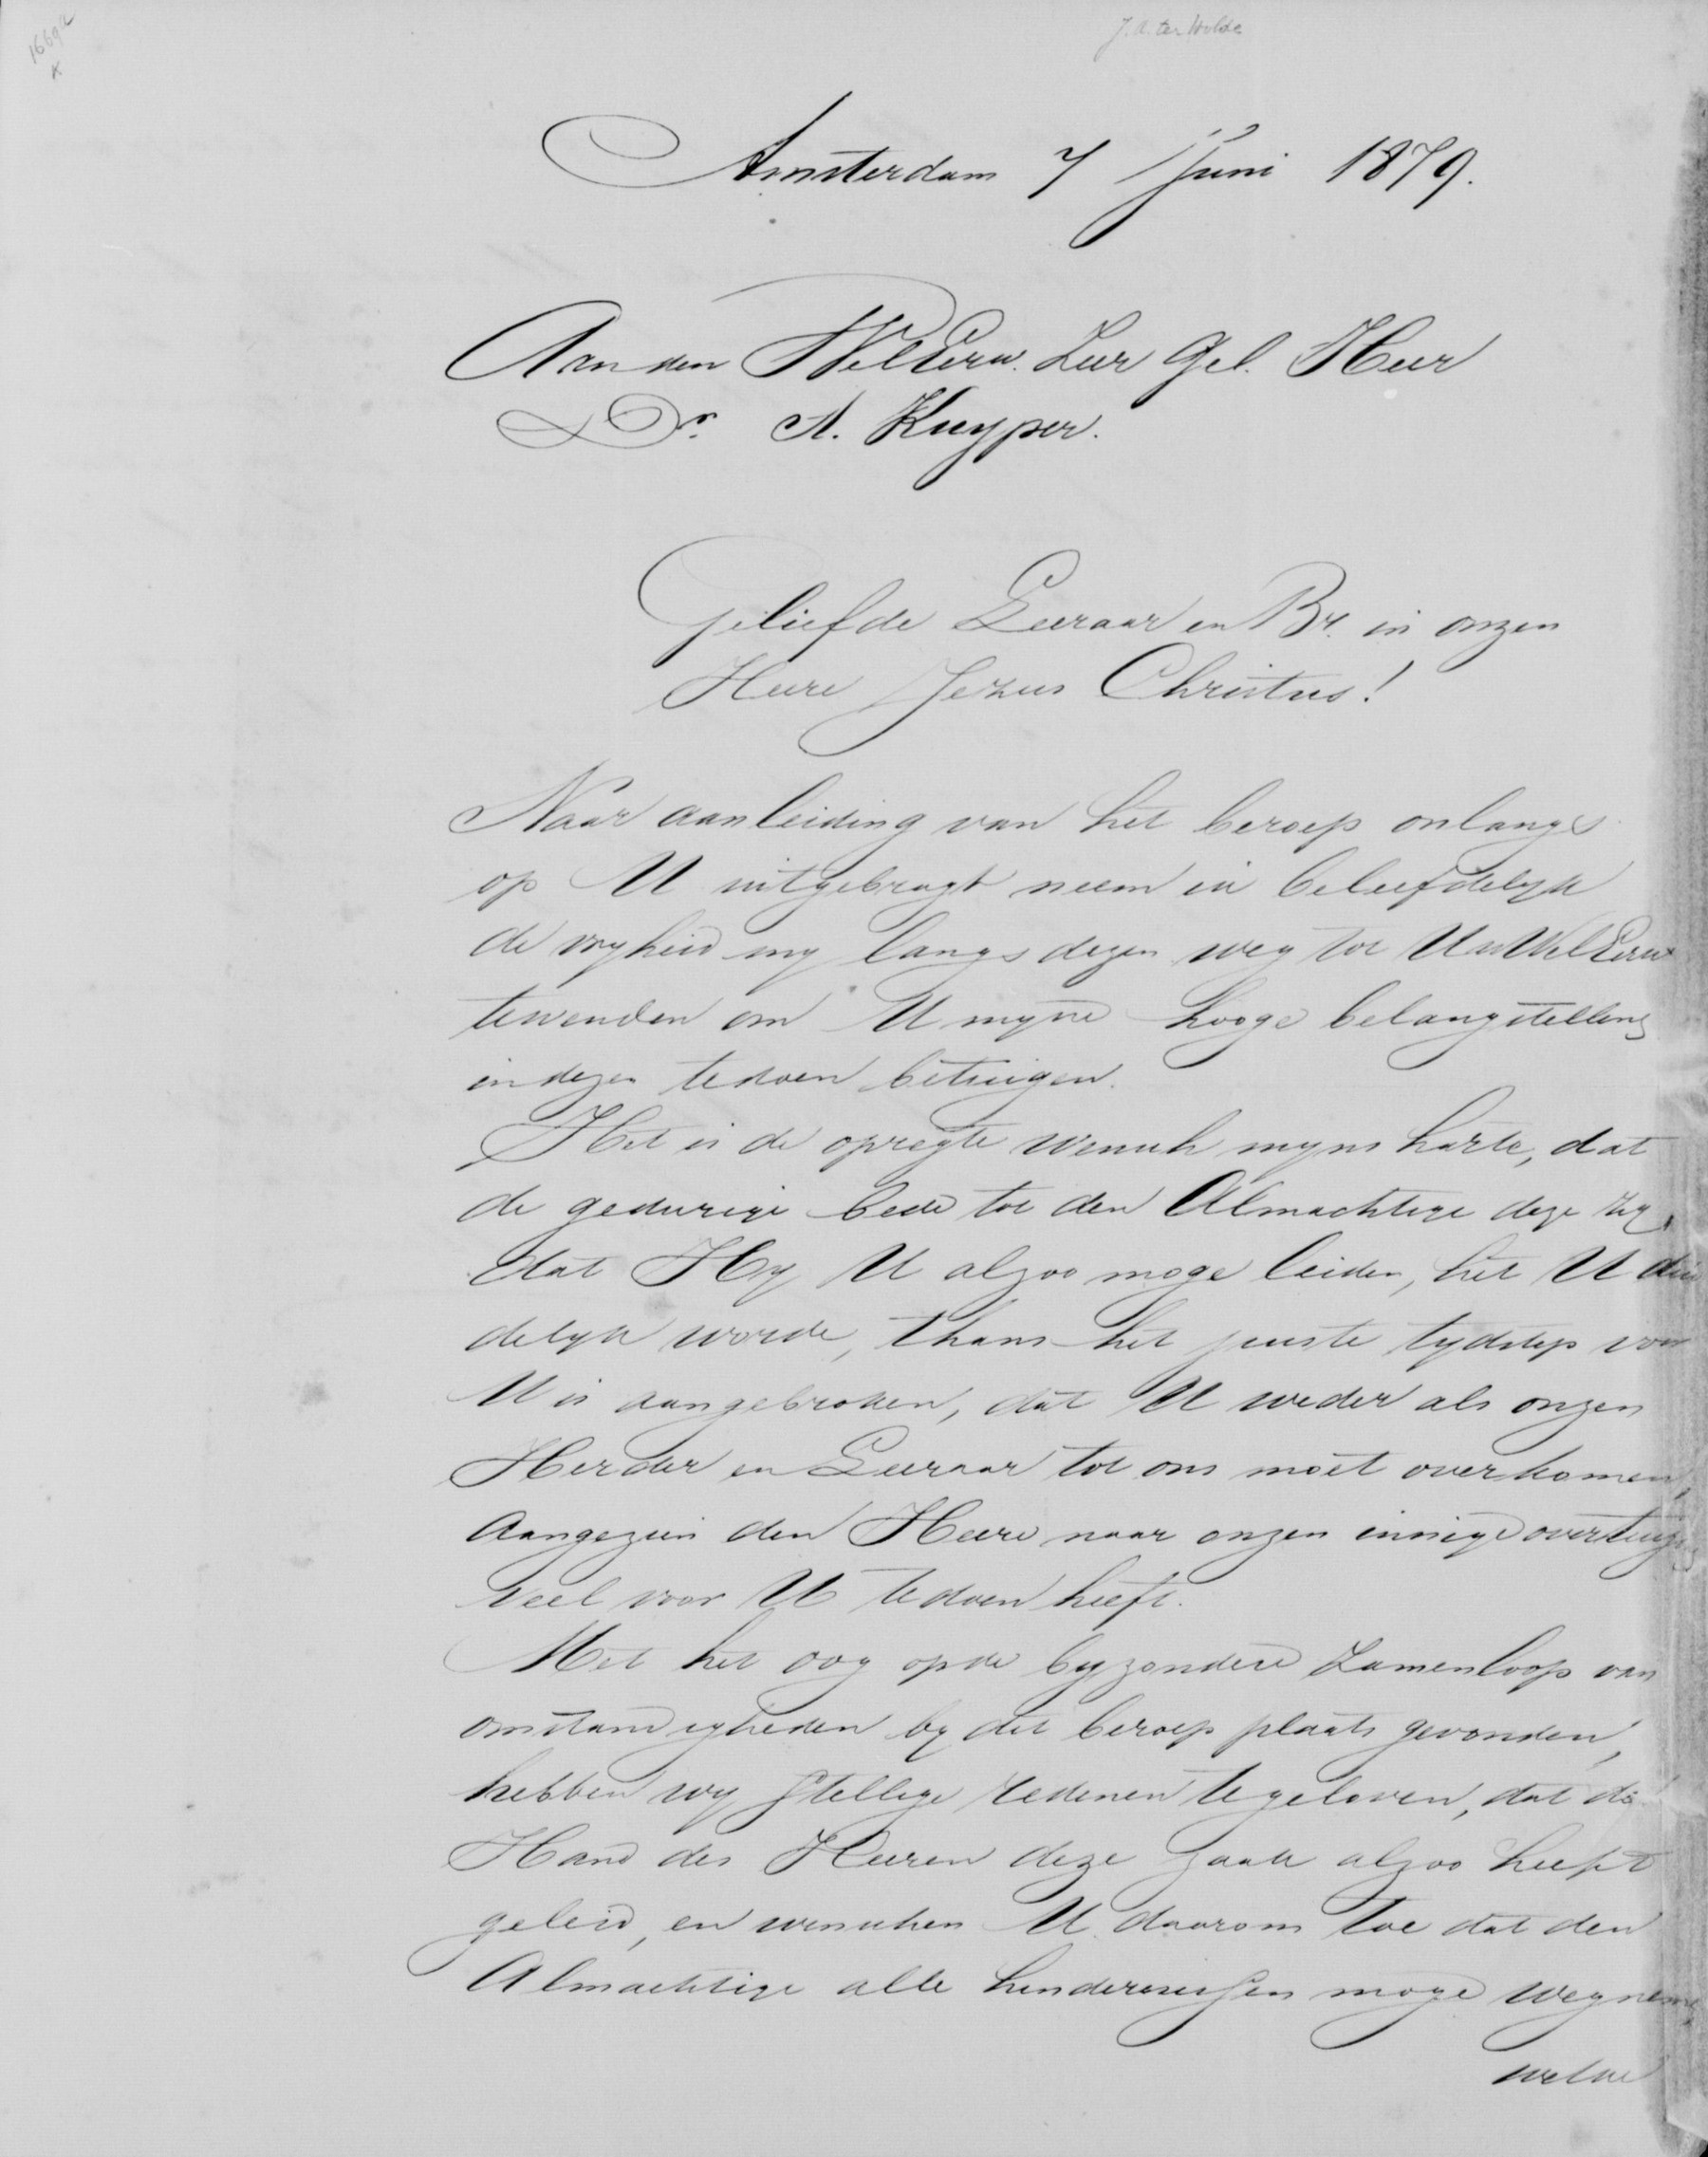 1669a
K
J.A. ter Wolde
Amsterdam 7 Juni 1879.
Aan den WelEerw. Zeer Gel. Heer
Dr. A. Kuyper.
Geliefde Leeraar en Br. in onzen
Heere Jezus Christus!
Naar aanleiding van het beroep onlangs
op U uitgebragt neem ik beleefdelyk
de vryheid my langs dezen weg tot Uw WelEerw
tewenden om U myne hooge belangstelling
in dezen tedoen betuigen.
Het is de opregte wensch myns harte, dat
de gedurige bede tot den Almachtige deze zy,
dat Hy U alzoo moge leiden, het U dui
delyk worde, thans het juiste tydstip voor
U is aangebroken, dat U weder als onzen
Herder en Leeraar tot ons moet overkomen,
aangezien den Heere naar onzen innige overtuig
veel voor U tedoen heeft.
Met het oog op de byzondere zamenloop van
omstandigheden by dit beroep plaats gevonden,
hebben wy stellige redenen tegeloven, dat de
Hand des Heeren deze zaak alzoo heeft
geleid, en wenschen U daarom toe dat den
Almachtige alle hinderenissen moge wegneme,
welke